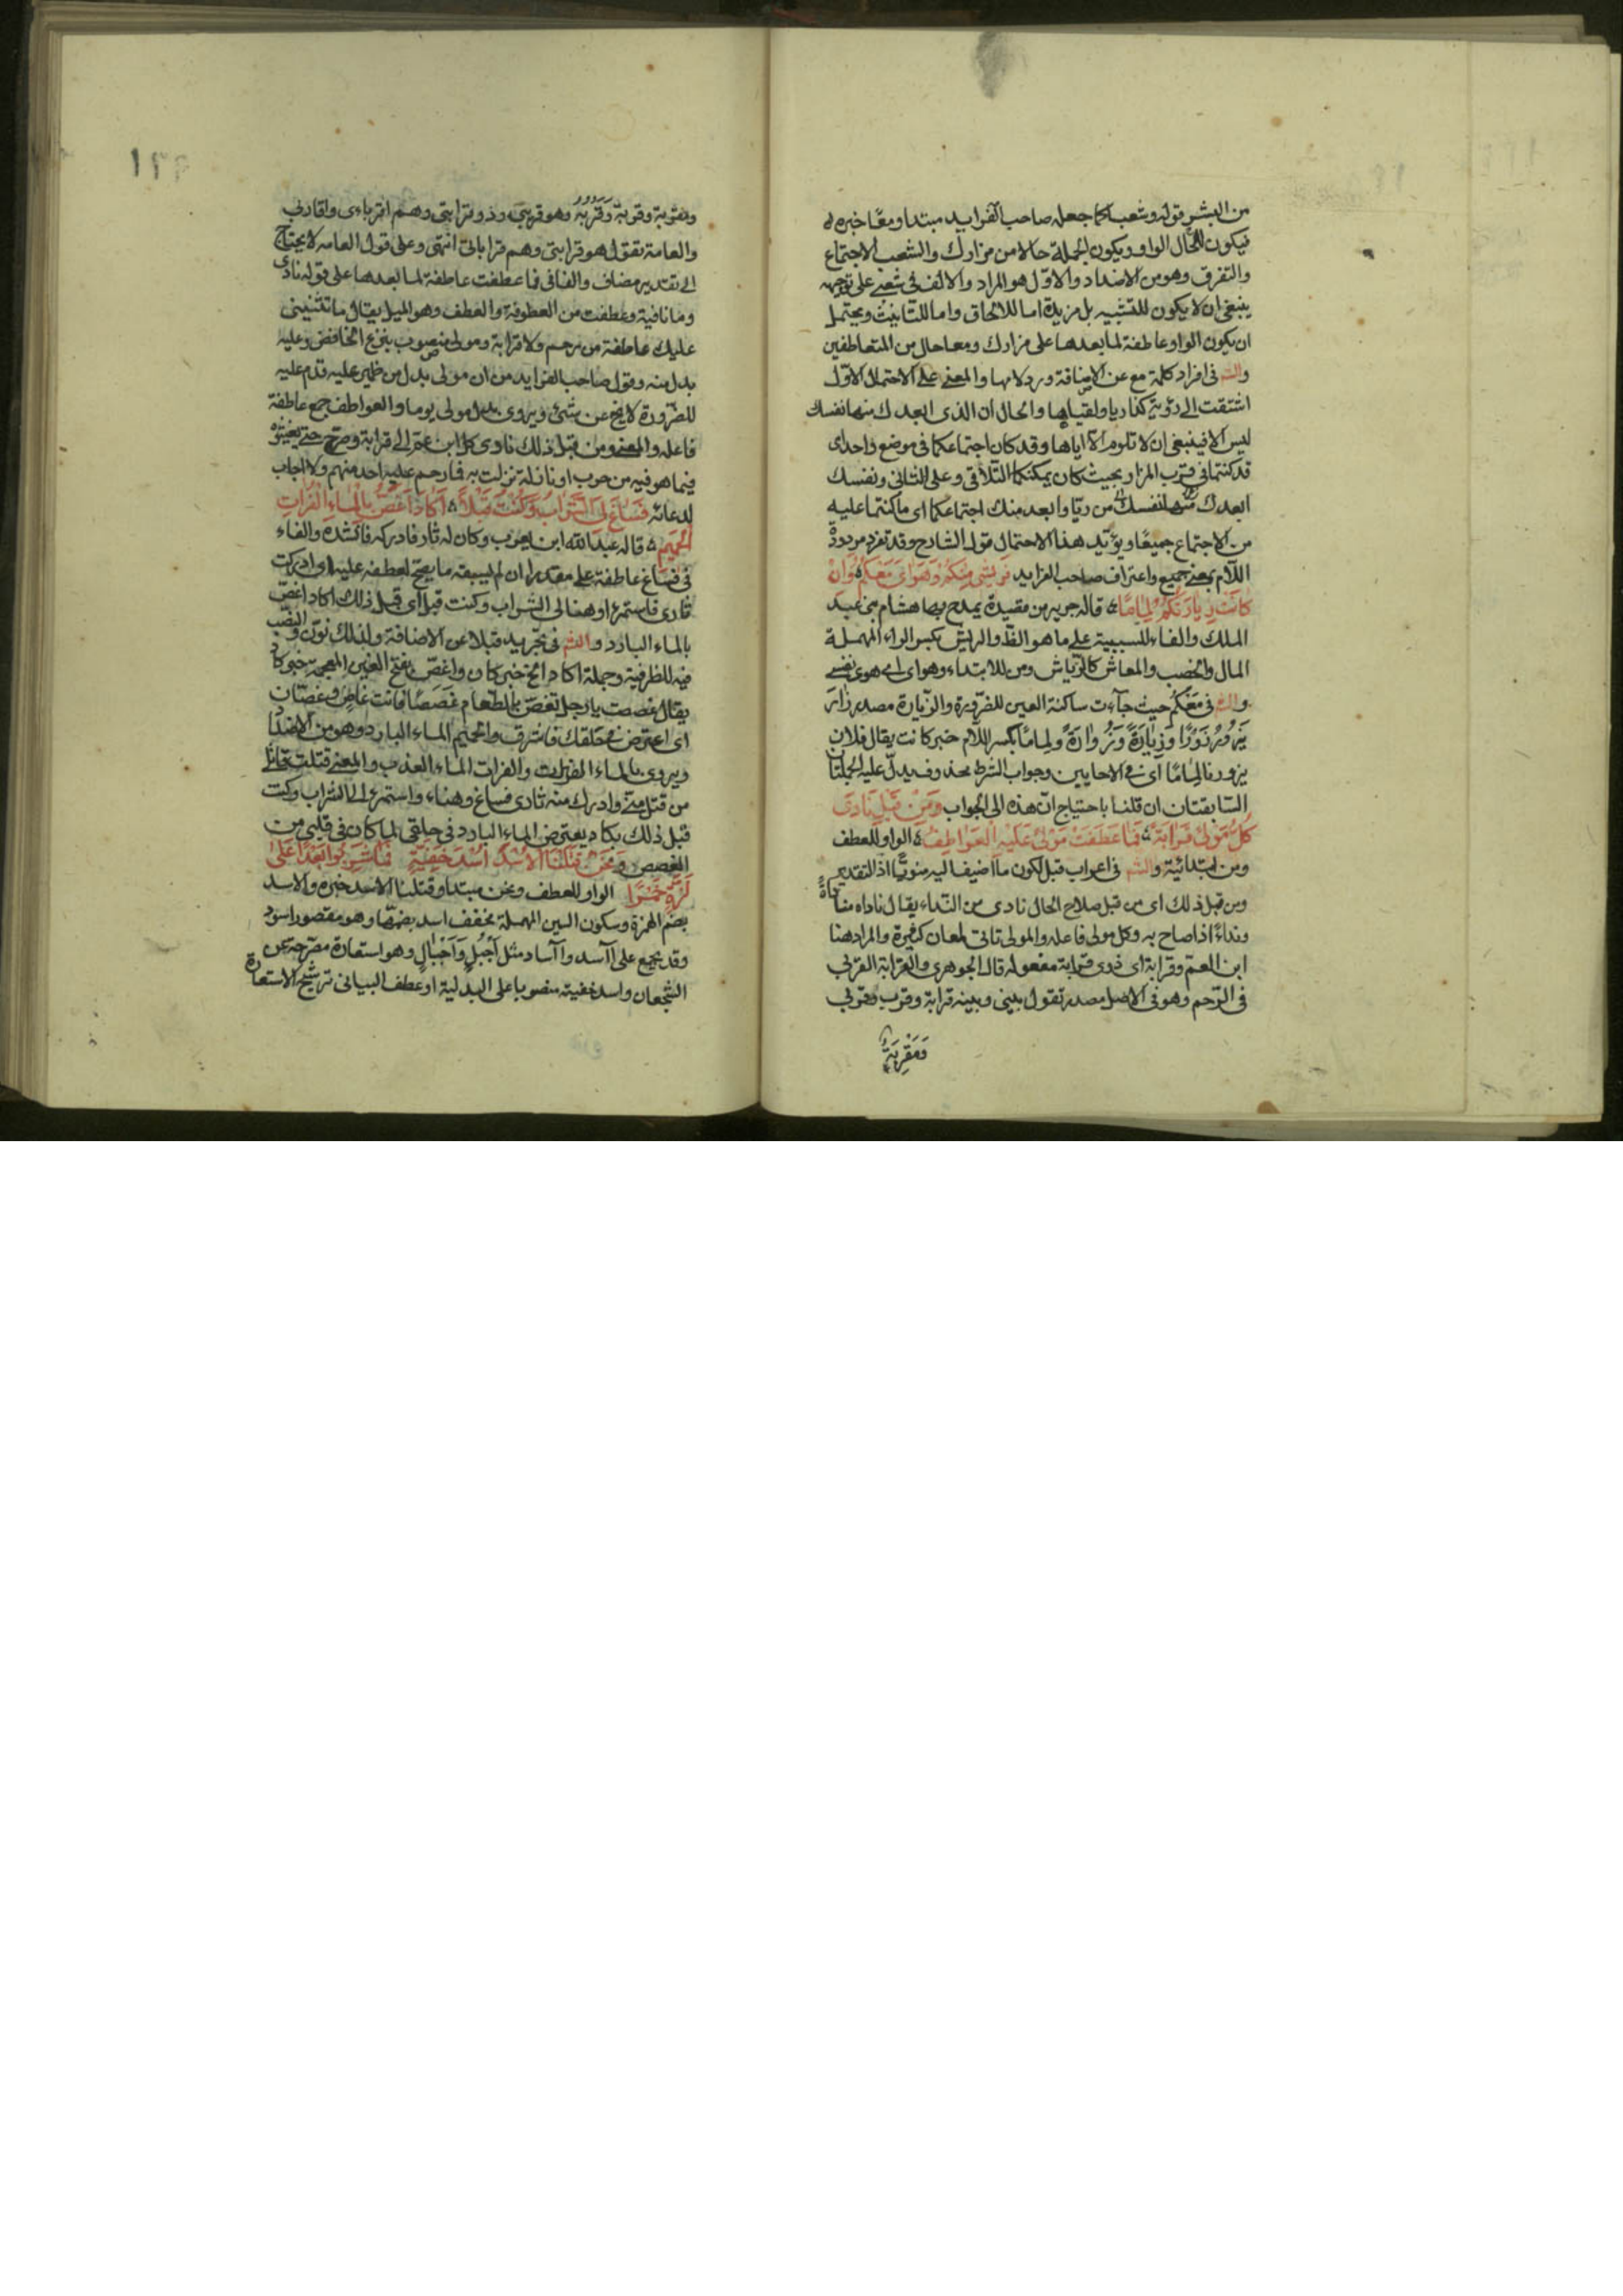 من البشر قوله وشعباكما جعله صاحب الفرايد مبتدا ومعا خبره له
فيكون للحال الواو ويكون الجملة حالا من مزارك والشعب الاجتماع
والتفرق وهو من الاضداد والاول هو المراد والالف في شعبي على توجيهه
ينبغي ان لا يكون للتثنية بل مزيدة اما للالحاق واما للتانيث ويحتمل
ان يكون الواو عاطفة لما بعدها على مزارك ومعا حال من المتعاطفين
والشه في افراد كلمة مع عن الاضافة ورد لامها والمعنى على الاحتمال الاول
اشتقت الى رؤية ريا ولقياها والحال ان الذي ابعدك منها نفسك
ليس الا فينبغي ان لا تلوم الا اياها وقد كان اجتماعكما في موضع واحد اى
قد كنتما في قرب المزار بحيث كان يمكنكما التلاقي وعلى الثاني ونفسك
ابعدك منها نفسك من ريا وابعد منك اجتماعكما اى ما كنتما عليه
من الاجتماع جميعا ويؤيد هذا الاحتمال قول الشارح وقد تفرد مردودة
اللام بمعنى جميع واعتراف صاحب الفرايد فَرِيشي مِنكُمُ وَهَوَايَ مَعْكُم ۵ وَاِنْ
كَانَت زِيَارَتُكُم لِمَامًا ۵ قاله جرير من قصيدة يمدح بها هشام بن عبد
الملك والفاء للسببية على ما هو الظ والريش بكسر الراء المهملة
المال والخصب والمعاش كالرياش ومن للابتداء وهواى اى هوى نفسي
والشه في مَعْكُم حيث جآءت ساكنة العين للضرورة والزيارة مصدر زارَ
يَزُورُ زَوْرًا وَزِيَارَةً وَزُوَارَةً ولِمامًا بكسر اللام خبر كانت يقال فلان
يزورنا لِمامًا اى في الاحايين وجواب الشرط محذوف يدلّ عليه الجملتان
السابقتان ان قلنا باحتياج انّ هذه الى الجواب وَمِنْ قَبْلِ نَادَى
كُلُّ مَوْلىً قَرَابَةً ۵ فَمَا عَطَفَتْ مَوْلىً عَلَيْهِ الْعَوَاطِفُ ۵ الواو للعطف
ومن ابتدائية والشه في اعراب قبل لكون ما اضيف اليه منويًّا اذ التقدير
ومن قبل ذلك اى من قبل صلاح الحال نادى من النداء يقال ناداه مناداةً
ونداءً اذا صاح به وكل مولى فاعله والمولى تاتى لمعان كثيرة والمراد هنا
ابن العم وقرابة اى ذوى قرابة مفعوله قال الجوهرى والقرابة القربى
في الرّحم وهو في الاصل مصدر تقول بينى وبينه قرابة وقرب وقربى
وَمَقْرِبَةٌ
ومقربة وقربة وَقُرُبَة وهو قريبي وذو قرابتى وهم اقرباءى واقاربى
والعامة تقول هو قرابتى وهم قراباتى انتهى وعلى قول العامه لا يحتاج
الى تقدير مضاف والفا في فما عطفت عاطفة لما بعدها على قوله نادى
وما نافية وعطفت من العطوفة والعطف وهو الميل يقال ما تثنينى
عليك عاطفة من رحم ولا قرابة ومولى منصوب بنزع الخافض وعليه
بدل منه وقول صاحب الفرايد من ان مولى بدل من ضمير عليه قدم عليه
للضرورة لا يخ عن شئ ويروى بدل مولى يوما والعواطف جمع عاطفة
فاعله والمعنى ومن قبل ذلك نادى كل ابن عم الى قرابة وصرخ حتى يغيثوه
فيما هو فيه من حرب او نازلة نزلت به فما رحم عليه احد منهم ولا اجاب
لدعائه فَسَاغَ لِيَ الشَّرَابُ وَكُنْتُ قَبْلًا ۵ اَكَادُ اَغَصُّ بِالْمَاءِ الْفُرَاتِ
الْحَمِيمِ ۵ قاله عبد الله ابن يعرب وكان له ثار فادركه فانشده والفاء
في فساغ عاطفة على مقدر ان لم يسبقه ما يصح لعطفه عليه اى ادركت
ثارى فاستمرء او هنا لى الشراب وكنت قبلا اى قبل ذلك اكاد اغصّ
بالماء البارد والشه في تجريد قبلا عن الاضافة ولذلك نوّن والنصب
فيه للظرفية وجملة اكاد الخ خبر كان واغصّ بفتح الغين المعجمة خبر كاد
يقال غصصت يا رجل تغصّ بالطعام غَصَصًا فانت غاصّ وغصّان
اى اعترض في حلقك فاشرق والحميم الماء البارد وهو من الاضداد
ويروى بالماء الفرات والفرات الماء العذب والمعنى قتلت قاتل
من قتل منى وادرك منه ثارى فساغ وهناء واستمرئ لى الشراب وكنت
قبل ذلك يكاد يعترض الماء البارد في حلقى لما كان في قلبي من
الغصص وَنَحْنُ قَتَلْنَا الْاُسْدَ اُسْدَ خَفِيَّةٍ فَمَا شَرِبُوا بَعْدًا عَلَى
لَذَّةٍ خَمْرًا الواو للعطف ونحن مبتدا وقتلنا الاسد خبره والاسد
بضم الهمزة وسكون السين المهملة مخفف اسد بضمها وهو مقصور اسود
وقد يجمع على اآسد وآساد مثل اَجْبُلٍ وَاَجْبَالٍ وهو استعارة مصرّحة عن
الشجعان واسد خفية منصوبا على البدلية او عطف البيانى ترشيح الاستعارة